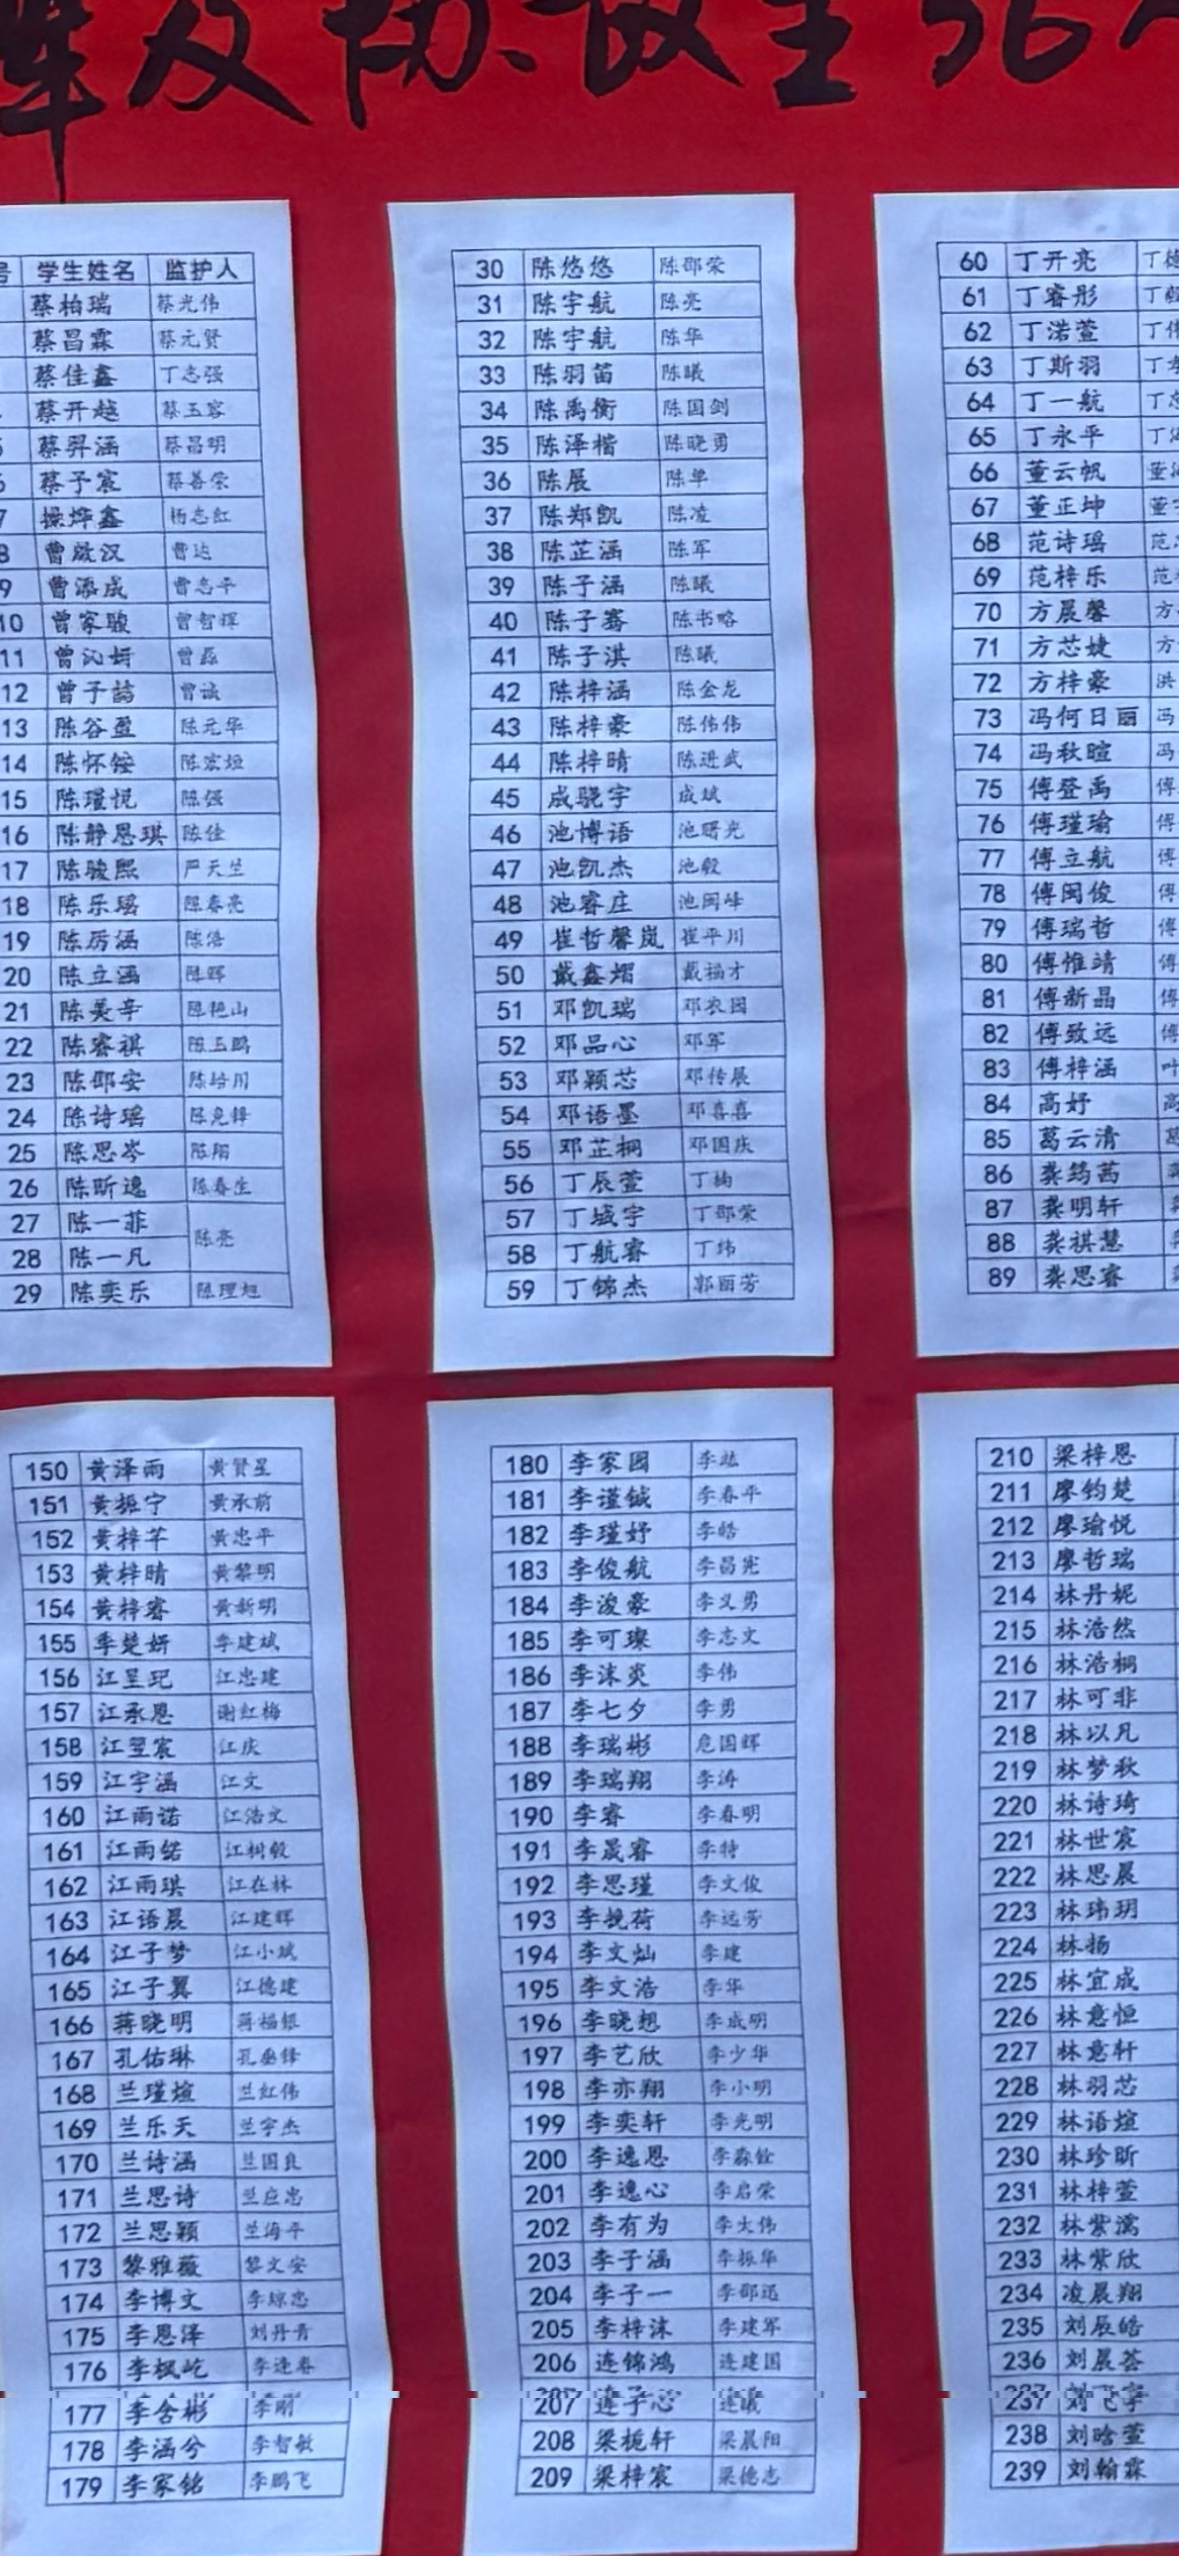 号 学生姓名 监护人
蔡柏瑞 蔡光伟
蔡昌霖 蔡元贤
蔡佳鑫 丁志强
蔡开越 蔡玉容
蔡羿涵 蔡昌明
蔡予宸 蔡善荣
7 操烨鑫 杨志红
8 曹啟汉 曹达
9 曹添成 曹志平
10 曾家骏 曾智辉
11 曾沁妍 曾磊
12 曾子喆 曾诚
13 陈谷盈 陈元华
14 陈怀铨 陈宏垣
15 陈瑾悦 陈强
16 陈静恩琪 陈佳
17 陈骏熙 严天兰
18 陈乐瑶 陈春亮
19 陈厉涵 陈浩
20 陈立涵 陈晖
21 陈美辛 陈艳山
22 陈睿祺 陈玉鹏
23 陈邵安 陈培川
24 陈诗瑶 陈先锋
25 陈思岑 陈翔
26 陈昕逸 陈春生
27 陈一菲 陈亮
28 陈一凡
29 陈奕乐 陈理旭
30 陈悠悠 陈邵荣
31 陈宇航 陈亮
32 陈宇航 陈华
33 陈羽笛 陈曦
34 陈禹衡 陈国剑
35 陈泽楷 陈晓勇
36 陈展 陈单
37 陈郑凯 陈凌
38 陈芷涵 陈军
39 陈子涵 陈曦
40 陈子骞 陈书略
41 陈子淇 陈曦
42 陈梓涵 陈金龙
43 陈梓豪 陈伟伟
44 陈梓晴 陈进武
45 成骁宇 成斌
46 池博语 池曙光
47 池凯杰 池毅
48 池睿庄 池闽峰
49 崔哲馨岚 崔平川
50 戴鑫熠 戴福才
51 邓凯瑞 邓农园
52 邓品心 邓军
53 邓颖芯 邓传展
54 邓语墨 邓喜喜
55 邓芷桐 邓国庆
56 丁辰萱 丁楠
57 丁城宇 丁邵荣
58 丁航睿 丁炜
59 丁锦杰 郭丽芳
60 丁开亮
61 丁睿彤
62 丁渃萱
63 丁斯羽
64 丁一航
65 丁永平
66 董云帆
67 董正坤
68 范诗瑶
69 范梓乐
70 方晨馨
71 方芯婕
72 方梓豪 洪
73 冯何日丽 冯
74 冯秋暄 冯
75 傅登禹 傅
76 傅瑾瑜 傅
77 傅立航 傅
78 傅闽俊 傅
79 傅瑞哲 傅
80 傅惟靖 傅
81 傅新晶 傅
82 傅致远 傅
83 傅梓涵 叶
84 高妤
85 葛云清
86 龚筠茜
87 龚明轩
88 龚祺慧
89 龚思睿
150 黄泽雨 黄贤星
151 黄振宁 黄承前
152 黄梓芊 黄忠平
153 黄梓晴 黄黎明
154 黄梓睿 黄新明
155 季楚妍 季建斌
156 江呈玘 江忠建
157 江承恩 谢红梅
158 江翌宸 江庆
159 江宇涵 江文
160 江雨诺 江浩文
161 江雨锘 江树毅
162 江雨琪 江在林
163 江语晨 江建辉
164 江子梦 江小斌
165 江子翼 江德建
166 蒋晓明 蒋福银
167 孔佑琳 孔垂锋
168 兰瑾煊 兰红伟
169 兰乐天 兰宇杰
170 兰诗涵 兰国良
171 兰思诗 兰应忠
172 兰思颖 兰海平
173 黎雅薇 黎文安
174 李博文 李琼忠
175 李恩泽 刘丹青
176 李枫屹 李逢春
177 李含彬 李刚
178 李涵兮 李智敏
179 李家铭 李鹏飞
180 李家园
181 李谨铖 李春平
182 李瑾妤 李皓
183 李俊航 李昌宪
184 李浚豪 李义勇
185 李可璨 李志文
186 李沫炎 李伟
187 李七夕 李勇
188 李瑞彬 危国辉
189 李瑞翔 李涛
190 李睿 李春明
191 李晟睿 李特
192 李思瑾 李文俊
193 李挽荷 李远芳
194 李文灿 李建
195 李文浩 李华
196 李晓想 李成明
197 李艺欣 李少华
198 李亦翔 李小明
199 李奕轩 李光明
200 李逸恩 李淼铨
201 李逸心 李启荣
202 李有为 李大伟
203 李子涵 李振华
204 李子一 李邵迅
205 李梓沫 李建军
206 连锦鸿 连建国
207 连子心 连曦
208 梁栀轩 梁晨阳
209 梁梓宸 梁德志
210 梁梓恩
211 廖钧楚
212 廖瑜悦
213 廖哲瑞
214 林丹妮
215 林浩然
216 林浩桐
217 林可非
218 林以凡
219 林梦秋
220 林诗琦
221 林世宸
222 林思晨
223 林玮玥
224 林扬
225 林宜成
226 林意恒
227 林意轩
228 林羽芯
229 林语煊
230 林珍昕
231 林梓萱
232 林紫濡
233 林紫欣
234 凌晨翔
235 刘辰皓
236 刘晨荟
237 刘飞宇
238 刘晗萱
239 刘翰霖